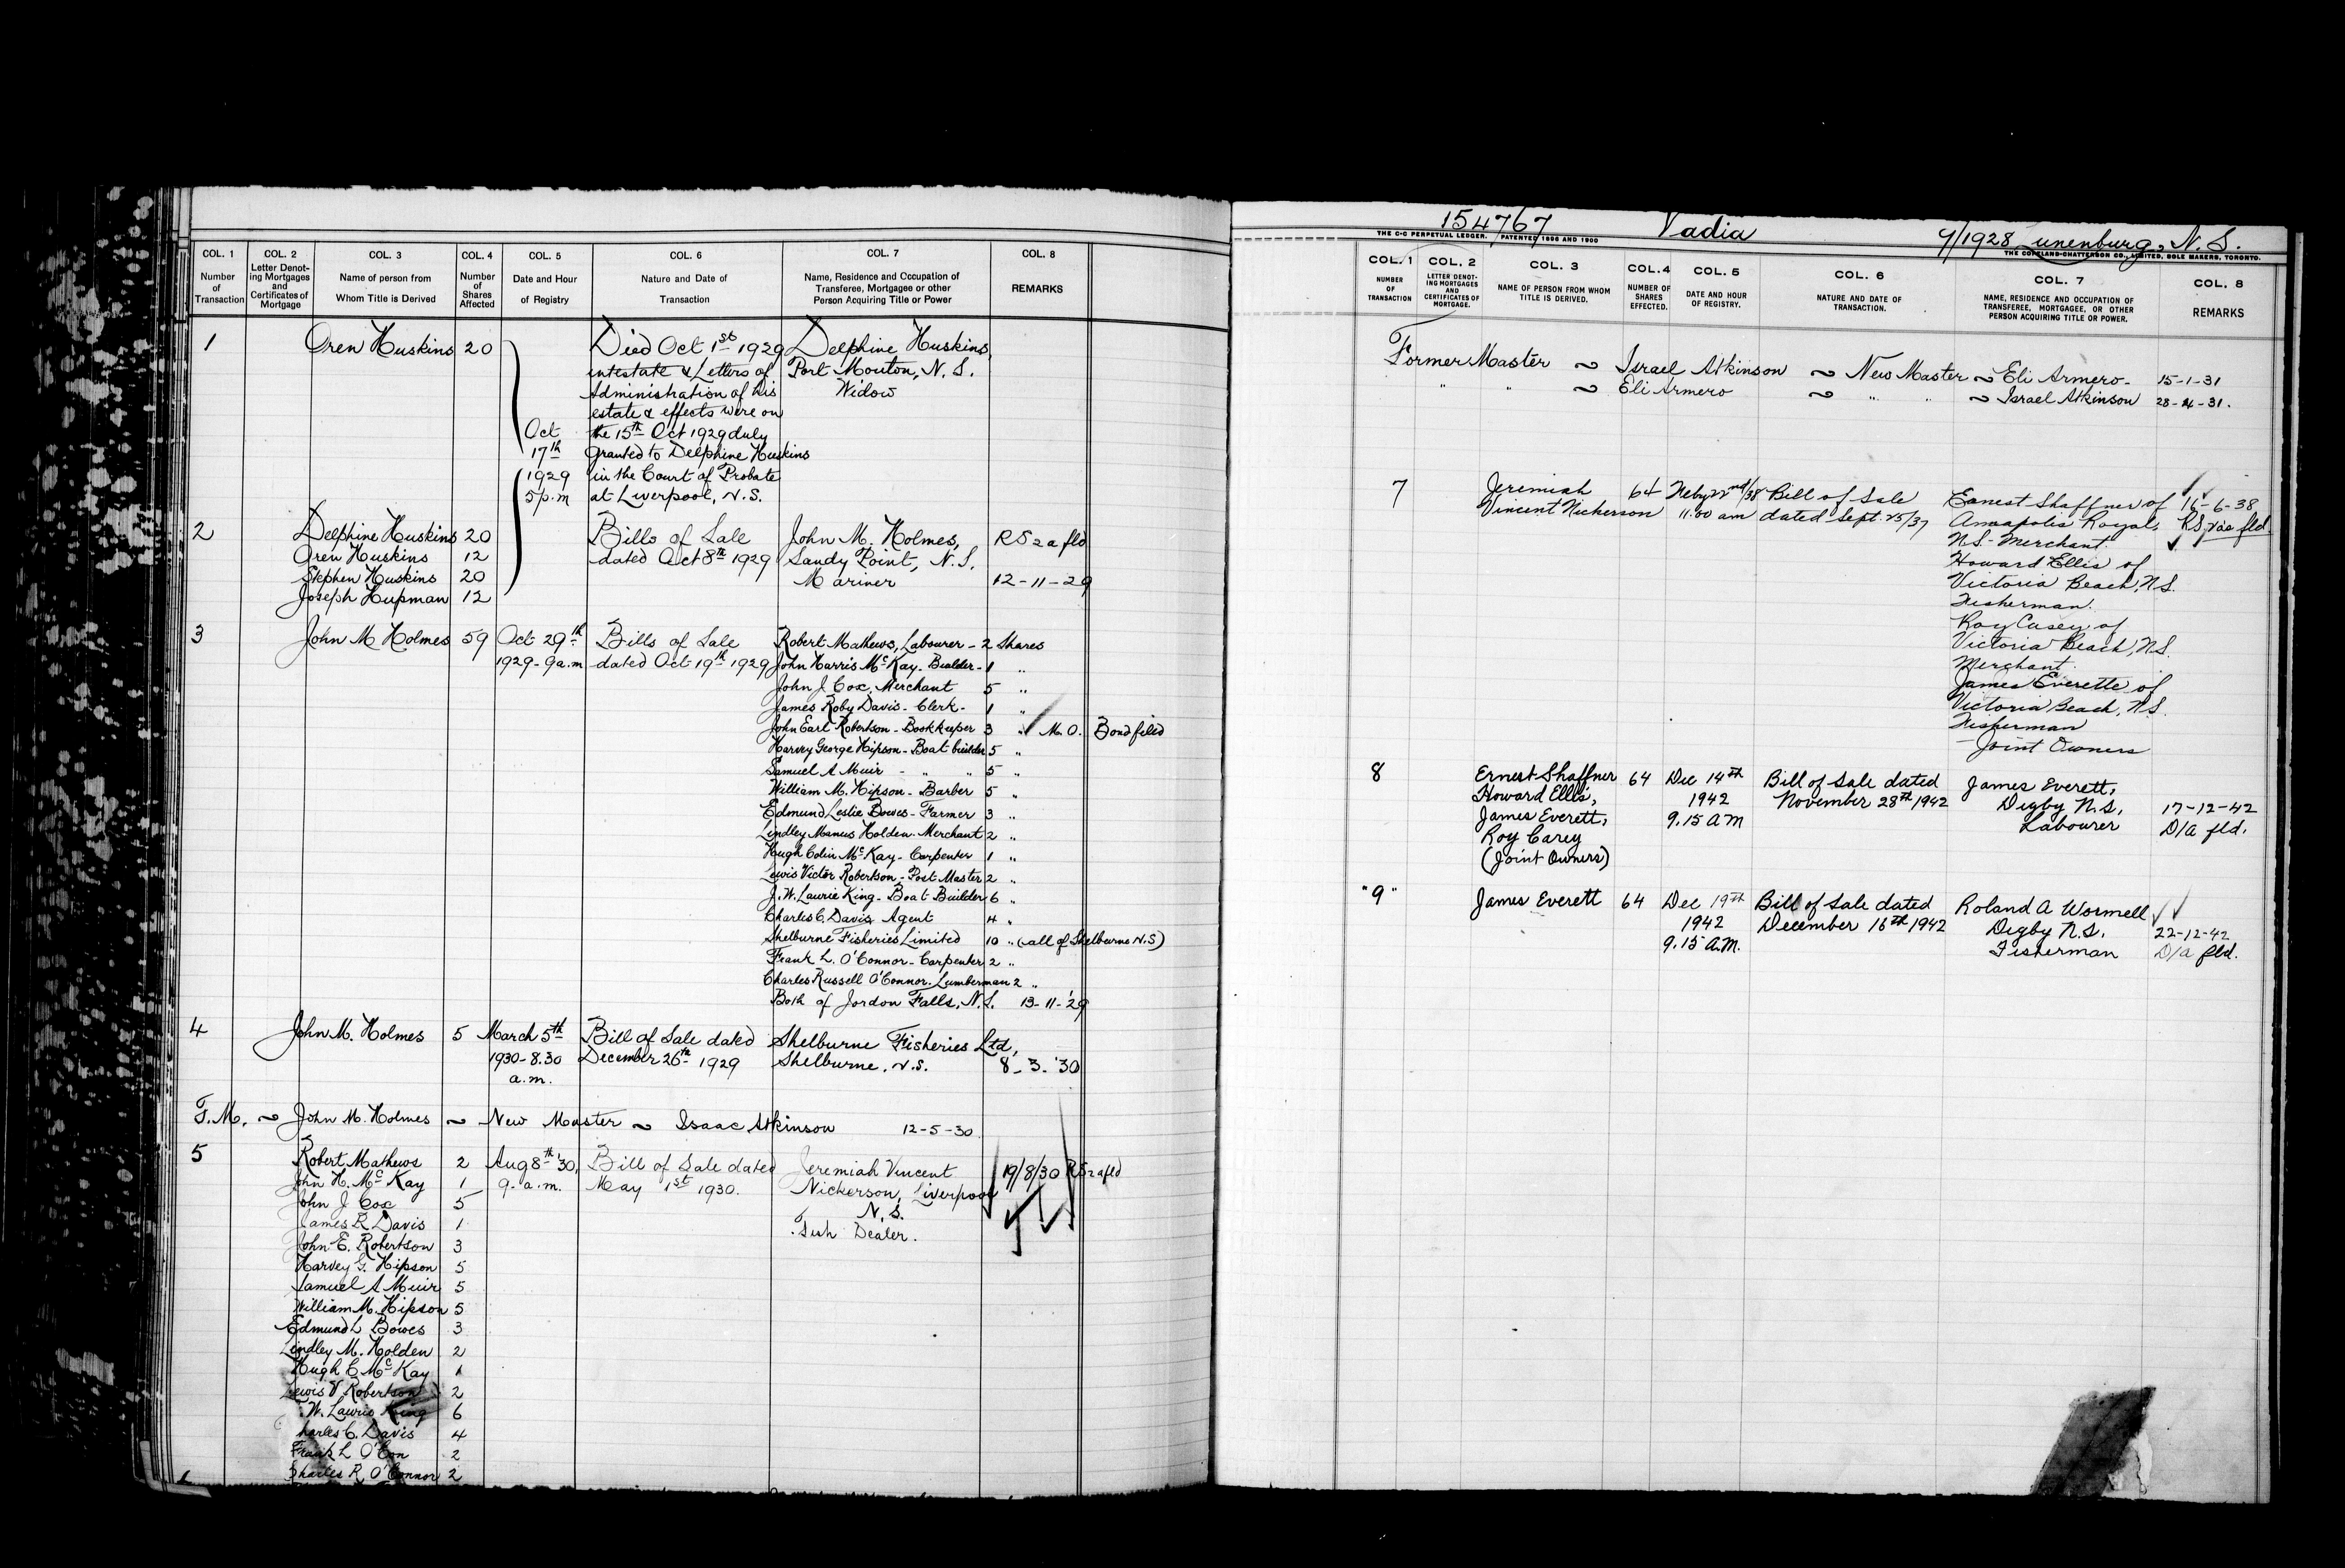 COL. 1 COL. 2 COL. 3 COL. 4 COL. 5 COL. 6 COL. 7 COL. 8
Number of Transaction
Letter Denoting Mortgages and Certificates of Mortgage
Name of person from Whom Title is Derived
Number of Shares Affected
Date and Hour of Registry
Nature and Date of Transaction
Name, Residence and Occupation of Transferee, Mortgagee or other Person Acquiring Title or Power
REMARKS
1 Oren Huskins 20 Died Oct 1st 1929 Delphine Huskins,
intestate & Letters of Port Mouton, N.S.
Administration of his Widow
estate & effects were on
Oct the 15th Oct 1929 duly
17th Granted to Delphine Huskins
1929 in the Court of Probate
5 p.m at Liverpool, N.S.
2 Delphine Huskins 20 Bills of Sale John M. Holmes, RS 2a fld
Oren Huskins 12 dated Oct 8th 1929 Sandy Point, N.S.
Stephen Huskins 20 Mariner 12-11-29
Joseph Hupman 12
3 John M Holmes 59 Oct 29th Bills of Sale Robert Mathews, Labourer - 2 Shares
1929-9a.m dated Oct 19th 1929 John Harris McKay - Builder - 1 "
John J Cox, Merchant 5 "
James Roby Davis - Clerk - 1 "
John Earl Robertson - Bookkeeper 3 " M.O. Bond filed
Harvey George Hipson - Boat builder 5 "
Samuel A Muir - " " 5 "
William M. Hipson - Barber 5 "
Edmund Leslie Bowes - Farmer 3 "
Lindley Manus Holden - Merchant 2 "
Hugh Colin McKay - Carpenter 1 "
Lewis Victor Robertson - Post Master 2 "
J. W. Laurie King - Boat Builder 6 "
Charles C. Davis Agent 4 "
Shelburne Fisheries Limited 10 " (all of Shelburne N.S)
Frank L. O'Connor - Carpenter 2 "
Charles Russell O'Connor. Lumberman 2 "
Both of Jordon Falls, N.S. 13-11-'29
4 John M. Holmes 5 March 5th Bill of Sale dated Shelburne Fisheries Ltd,
1930-8.30 December 26th 1929 Shelburne, N.S. 8-3-'30
a.m.
F.M. ~ John M. Holmes ~ New Master ~ Isaac Atkinson 12-5-30
5 Robert Mathews 2 Aug 8th '30, Bill of Sale dated Jeremiah Vincent 19/8/30 RS 2a fld
John H. McKay 1 9. a.m. May 1st 1930. Nickerson, Liverpool
John J Cox 5 N.S.
James R Davis 1 Fish Dealer.
John E. Robertson 3
Harvey G. Hipson 5
Samuel A Muir 5
William M. Hipson 5
Edmund L Bowes 3
Lindley M. Holden 2
Hugh C McKay 1
Lewis V Robertson 2
W. Laurie King 6
harles C. Davis 4
Frank L O'Con 2
Charles R O'Connor 2
154767 Vadia 9/1928 Lunenburg, N.S.
THE C-C PERPETUAL LEDGER. PATENTED 1896 AND 1900
THE COPELAND-CHATTERSON CO., LIMITED, SOLE MAKERS, TORONTO.
COL. 1 COL. 2 COL. 3 COL. 4 COL. 5 COL. 6 COL. 7 COL. 8
NUMBER OF TRANSACTION
LETTER DENOTING MORTGAGES AND CERTIFICATES OF MORTGAGE.
NAME OF PERSON FROM WHOM TITLE IS DERIVED.
NUMBER OF SHARES EFFECTED.
DATE AND HOUR OF REGISTRY.
NATURE AND DATE OF TRANSACTION.
NAME, RESIDENCE AND OCCUPATION OF TRANSFEREE, MORTGAGEE, OR OTHER PERSON ACQUIRING TITLE OR POWER.
REMARKS
Former Master ~ Israel Atkinson ~ New Master ~ Eli Armero - 15-1-31
" " ~ Eli Armero ~ " " ~ Israel Atkinson 28-4-31.
7 Jeremiah 64 Feby 22nd/38 Bill of Sale Earnest Shaffner of 16-6-38
Vincent Nickerson 11.00 am dated Sept. 25/37 Annapolis Royal, RS 2aa fld.
N.S. - Merchant.
Howard Ellis of
Victoria Beach, N.S.
Fisherman.
Roy Casey of
Victoria Beach, N.S.
Merchant.
James Everette of
Victoria Beach, N.S.
Fisherman
- Joint Owners
8 Ernest Shaffner 64 Dec 14th Bill of Sale dated James Everett,
Howard Ellis, 1942 November 28th 1942 Digby N.S. 17-12-42
James Everett, 9.15 AM Labourer D/a fld.
Roy Carey
(Joint Owners)
"9" James Everett 64 Dec 19th Bill of Sale dated Roland A Wormell
1942 December 16th 1942 Digby N.S. 22-12-42
9.15 A.M. Fisherman D/a fld.